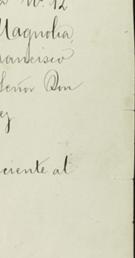 Nº 12
Magnolia,
Francisco
Señor Don
ez
ciente al